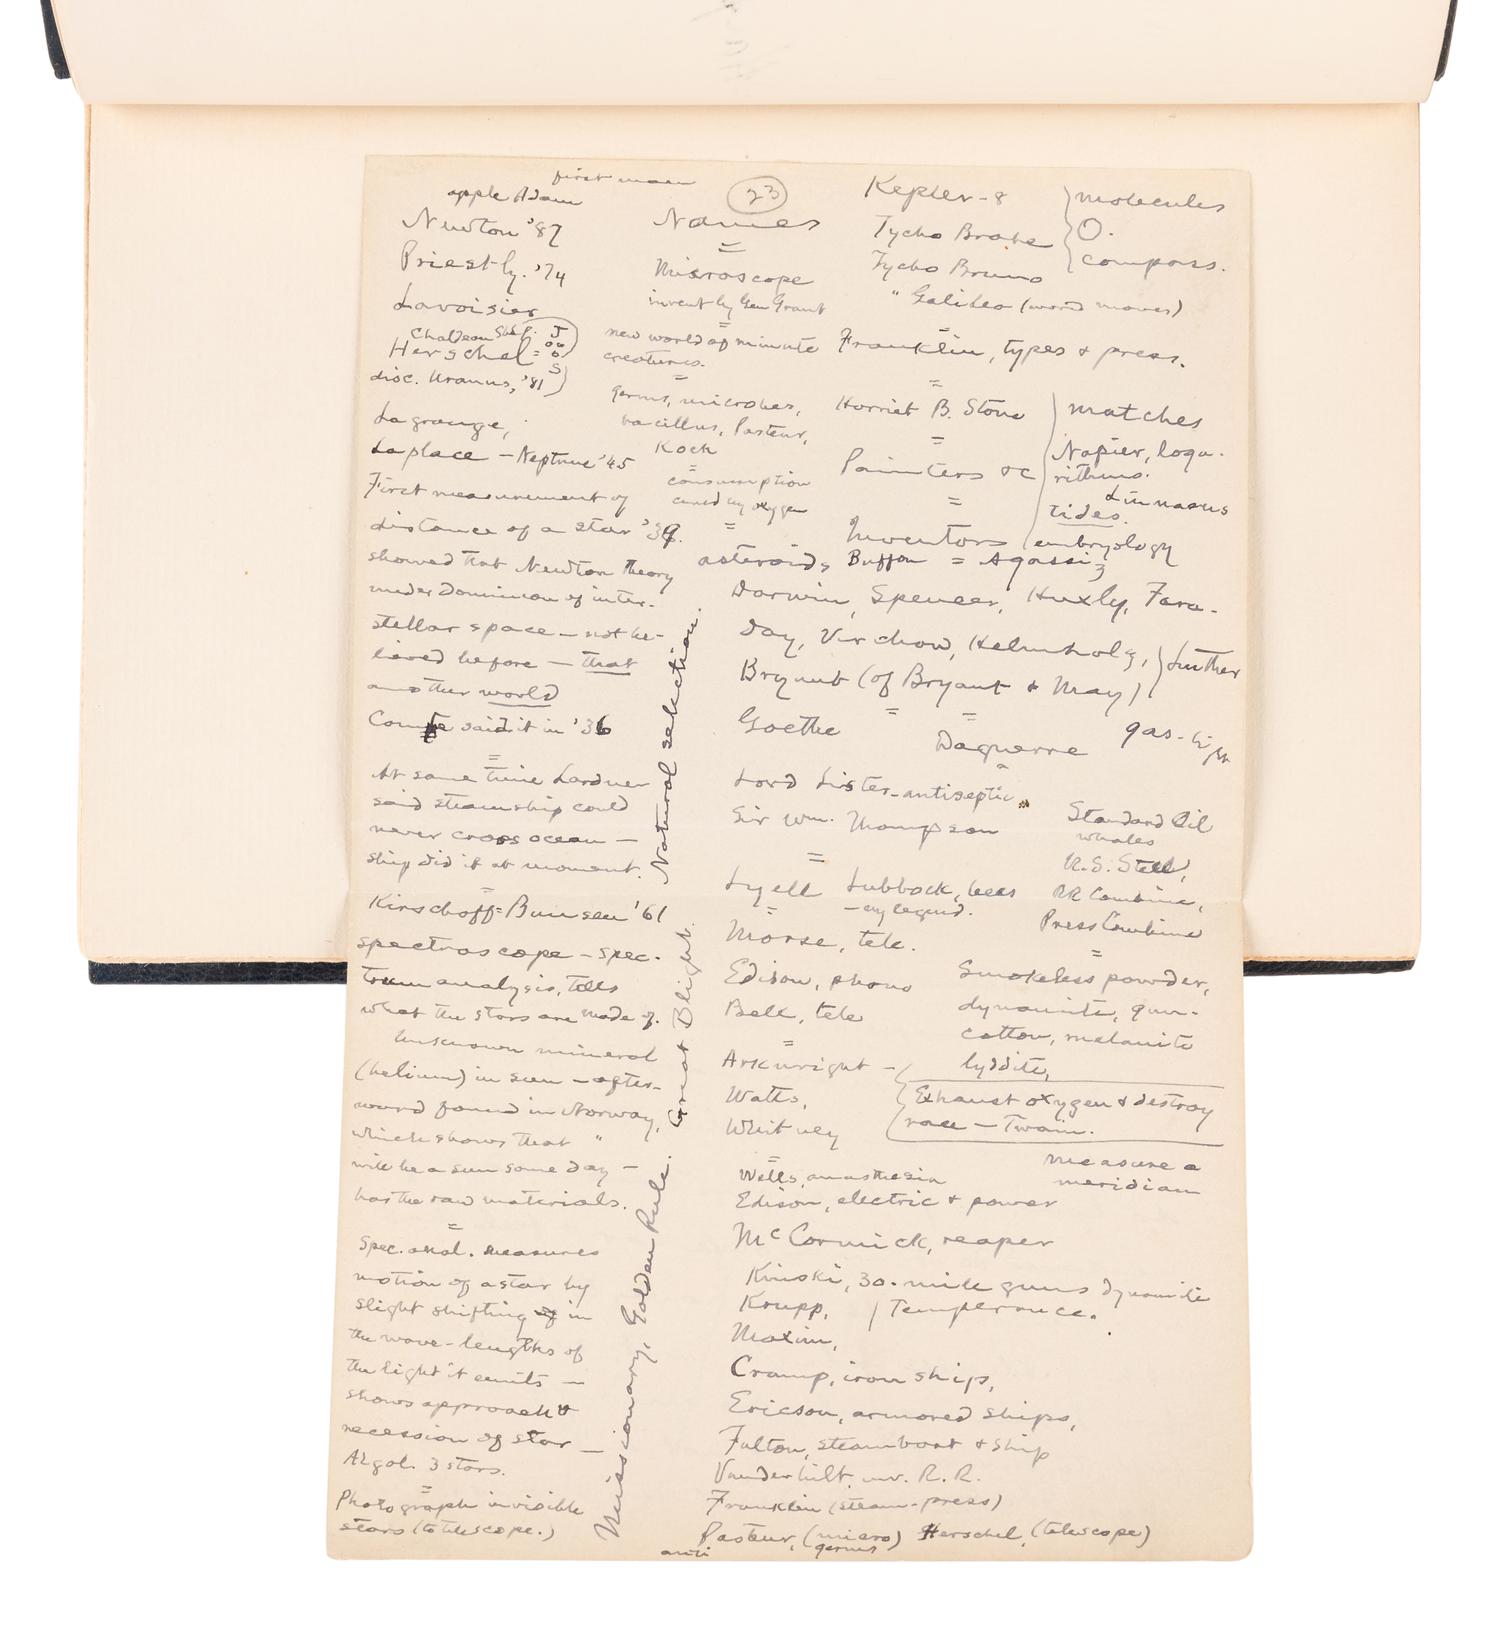 first man
apple Adam
Newton '87
Priestly. '74
Lavoisier
Chaldean Shep.
Herschel =
disc. Uranus, '81
Lagrange,
Laplace – Neptune '45
First measurement of
distance of a star '39.
showed that Newton theory
under Dominion of inter-
stellar space – not be-
lieved before – that
another world
Comte said it in '36
=
At same time Lardner
said steamship could
never cross ocean –
ship did it at moment.
=
Kirschoff = Bunsen '61
spectroscope – spec-
trum analysis, tells
what the stars are made of.
Unknown mineral
(helium) in sun – after-
ward found in Norway,
which shows that "
will be a sun some day –
has the raw materials.
=
Spec. anal. measures
motion of a star by
slight shifting of in
the wave-lengths of
the light it emits –
shows approach &
recession of star –
Algol. 3 stars.
=
Photograph invisible
stars (to telescope.)
Missionary, Golden Rule. Great Blight. Natural selection.
23
Names
=
Microscope
invent by Gen Grant
=
new world of minute
creatures.
=
germs, microbes,
bacillus, Pasteur,
Koch
=
consumption
cured by oxygen
=
asteroids, Buffon = Agassiz
Kepler – 8
Tycho Brahe
Tycho Bruno
" Galileo (world moves)
=
Franklin, types & press.
=
Harriet B. Stowe
=
Painters &c
=
Inventors
molecules
O.
compass.
matches
Napier, loga-
rithms.
Linnaeus
tides.
embryology
Darwin, Spencer, Huxly, Fara-
day, Virchow, Helmholz, Luther
Bryant (of Bryant & May)
= =
Goethe
Daguerre
gas-light
Lord Lister – antiseptic
Sir Wm. Thompson
=
Lyell Lubbock, bees
= – my legend.
Morse, tele.
Edison, phono
Bell, tele
=
Arkwright –
Watts,
Whitney
=
Standard Oil
whales
U.S. Steel,
RR Combine,
Press Combine
=
Smokeless powder,
dynamite, gun-
cotton, melanite
lyddite,
Exhaust oxygen & destroy
race – Twain.
measure a
meridian
Wells, anasthesia
Edison, electric & power
McCormick, reaper
Kinski, 30-mile guns dynamite
Krupp, Temperance.
Maxim,
Cramp, iron ships,
Ericson, armored ships,
Fulton, steamboat & ship
Vanderbilt, inv. R. R.
Franklin (steam-press)
Pasteur, (micro) Herschel, (telescope)
anti germs